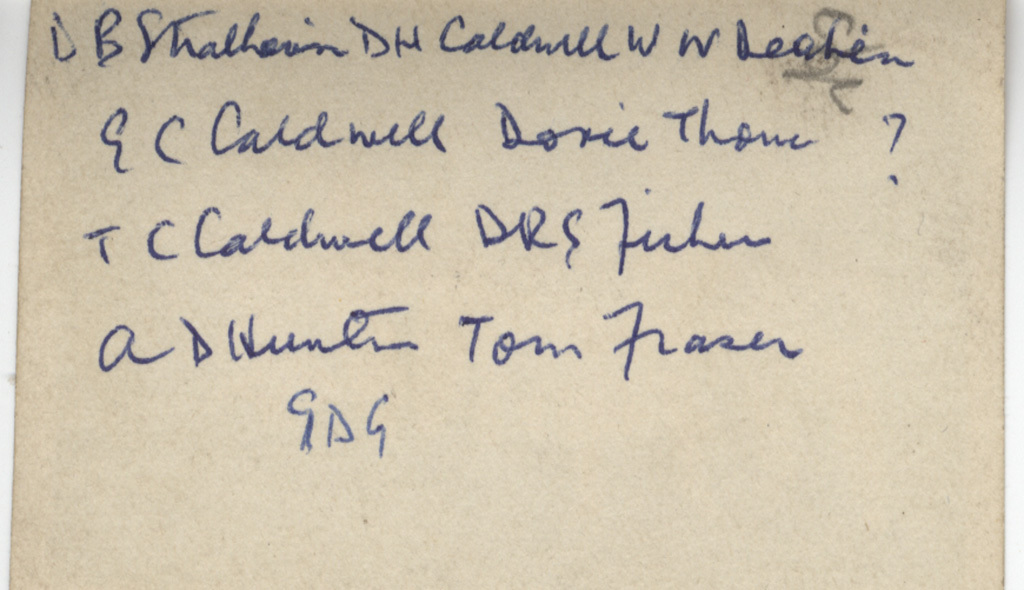 D B Strathairn D H Caldwell W W
G C Caldwell Dosie Thom ?
T C Caldwell D R G Fisher
A D Hunter Tom Fraser
G D G